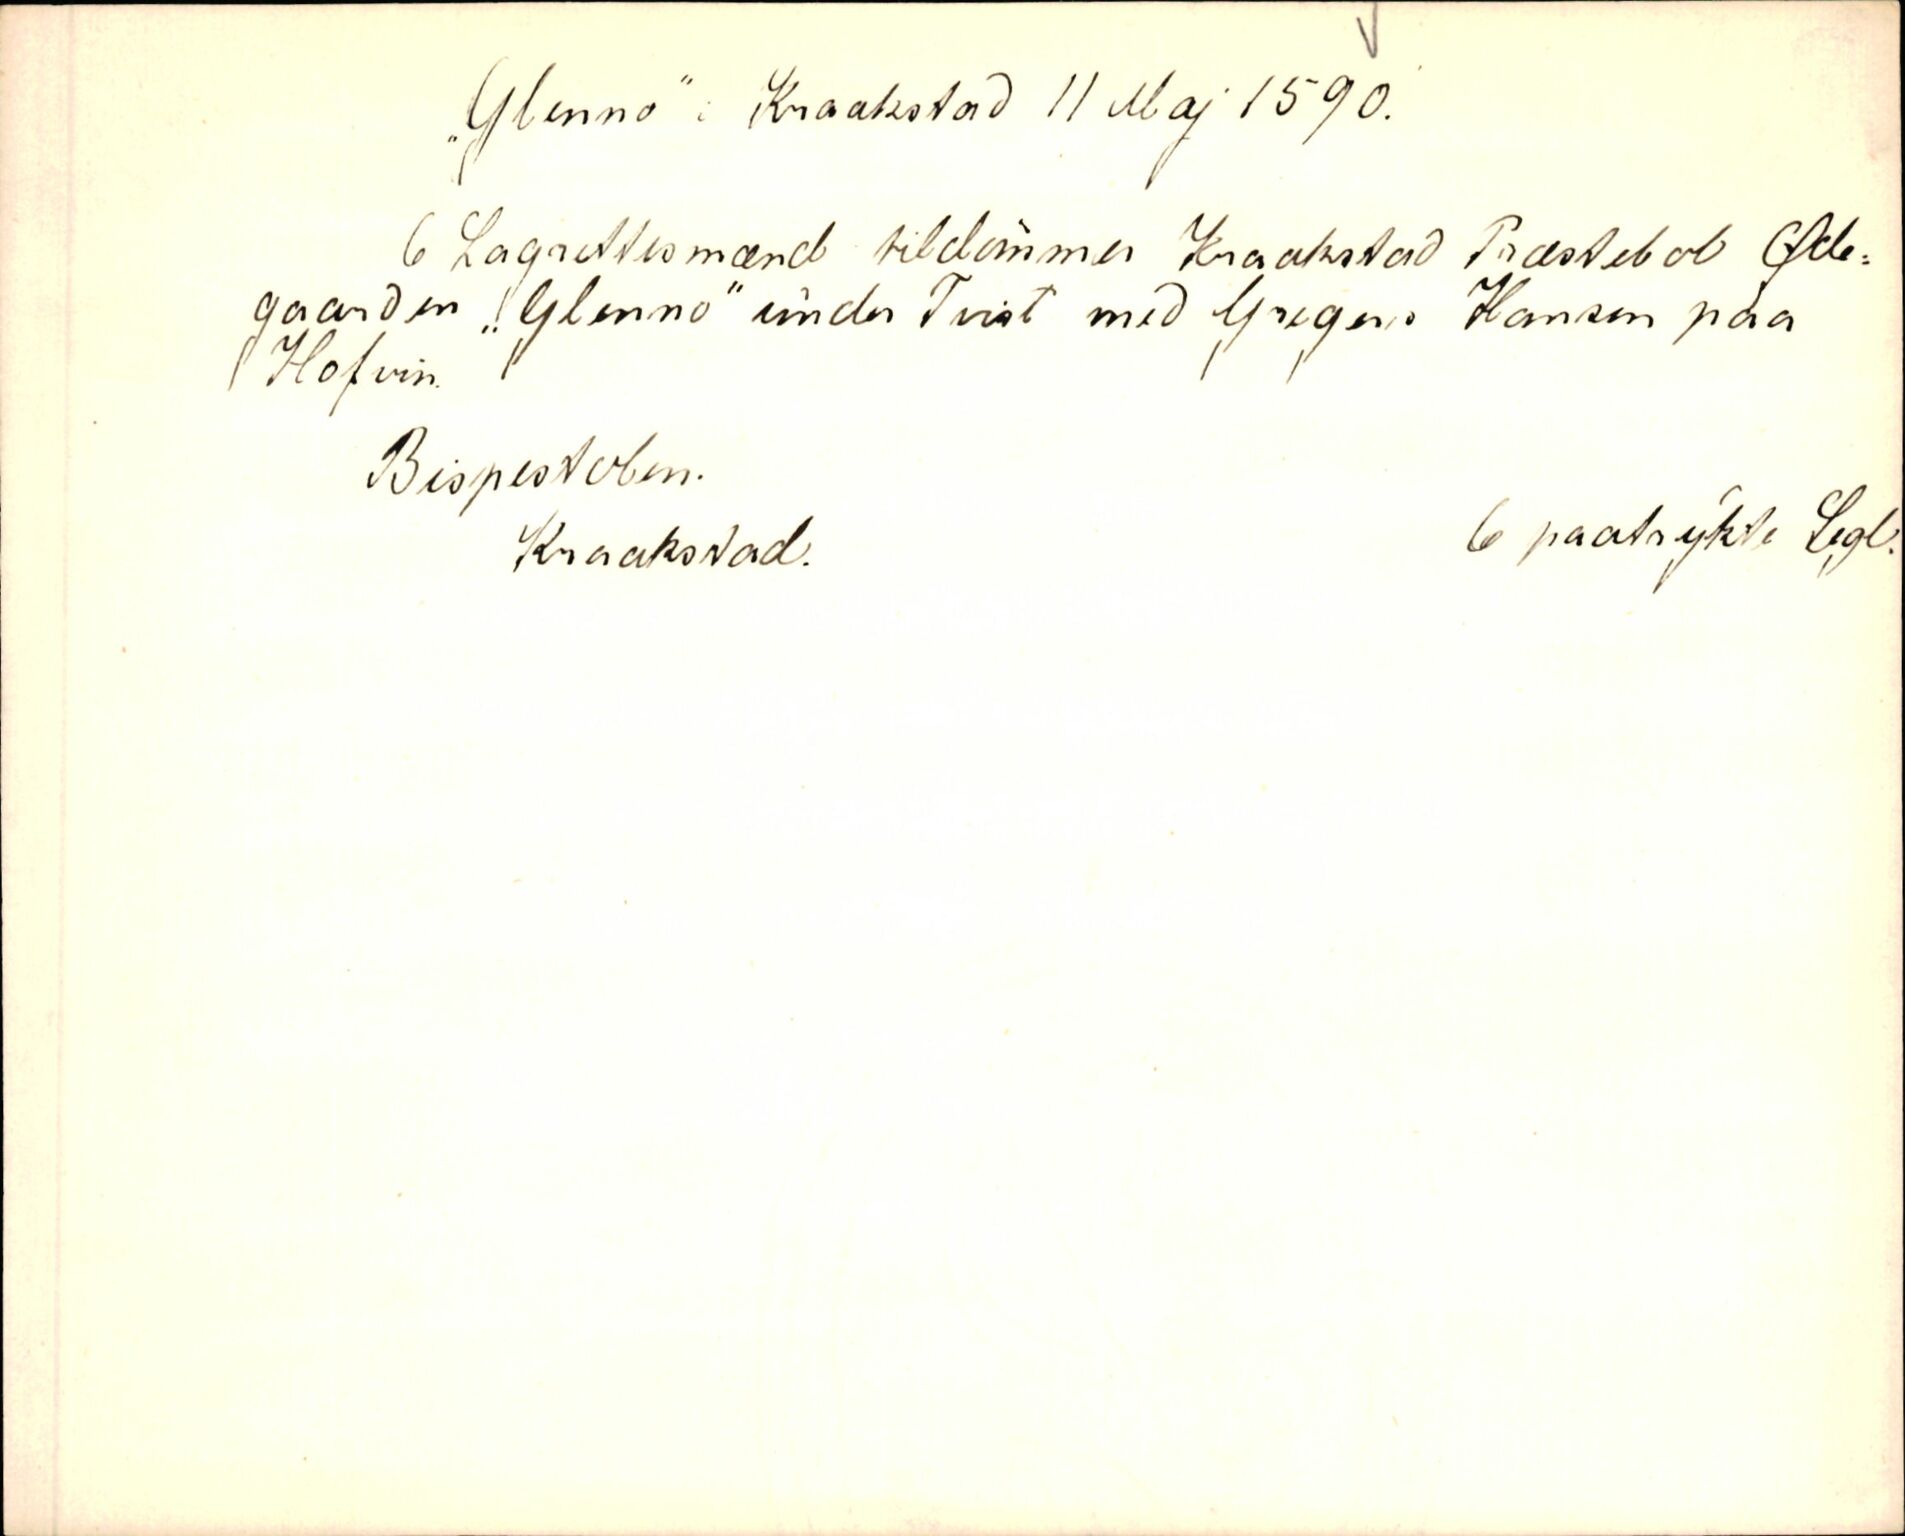 „Glenno" i Kraakstad 11 Maj 1590.
6 Lagrettesmænd tildömmer Kraakstad Præstebol Øde=
gaarden „Glenno" under Tvist med Gregers Hansen paa
Hofvin.
Bispestolen.
Kraakstad.
6 paatrykte Segl.